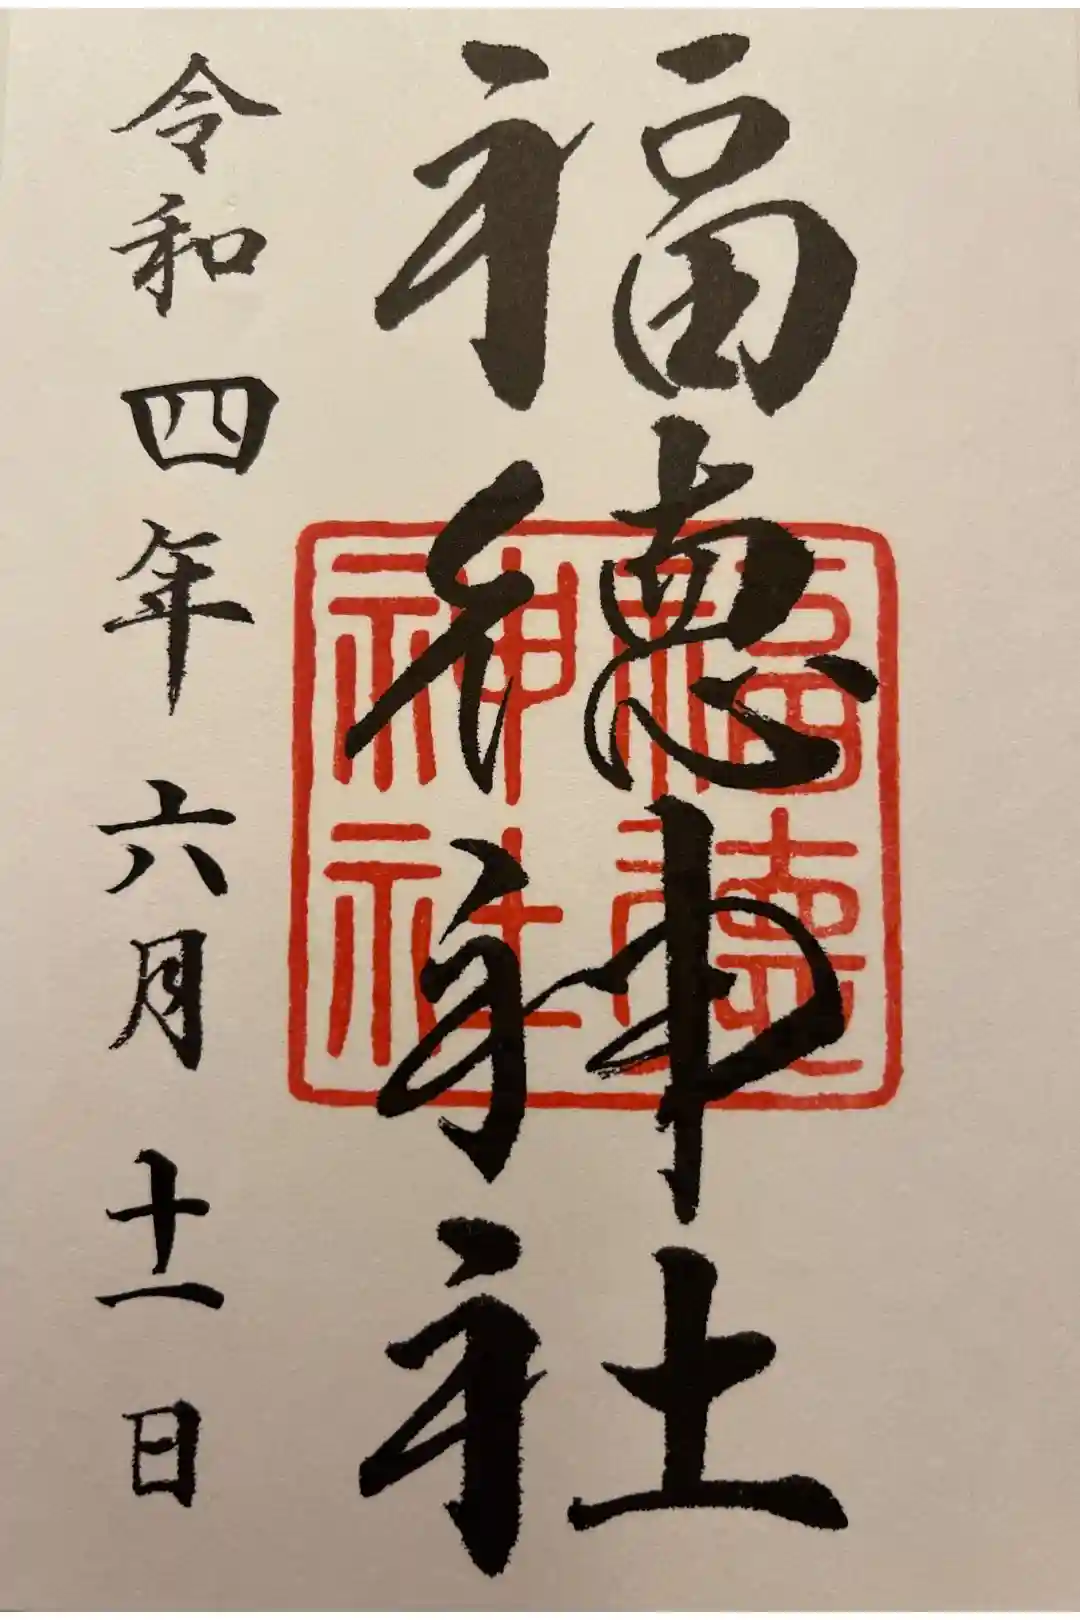 福徳神社
福徳神社
令和四年六月十一日